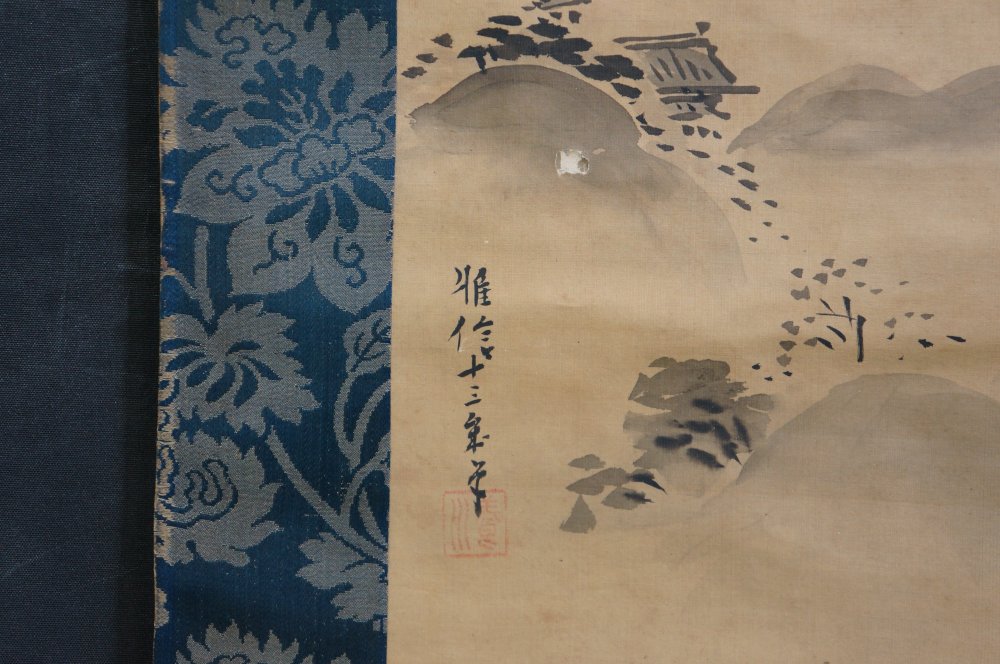 雅信十三歳筆